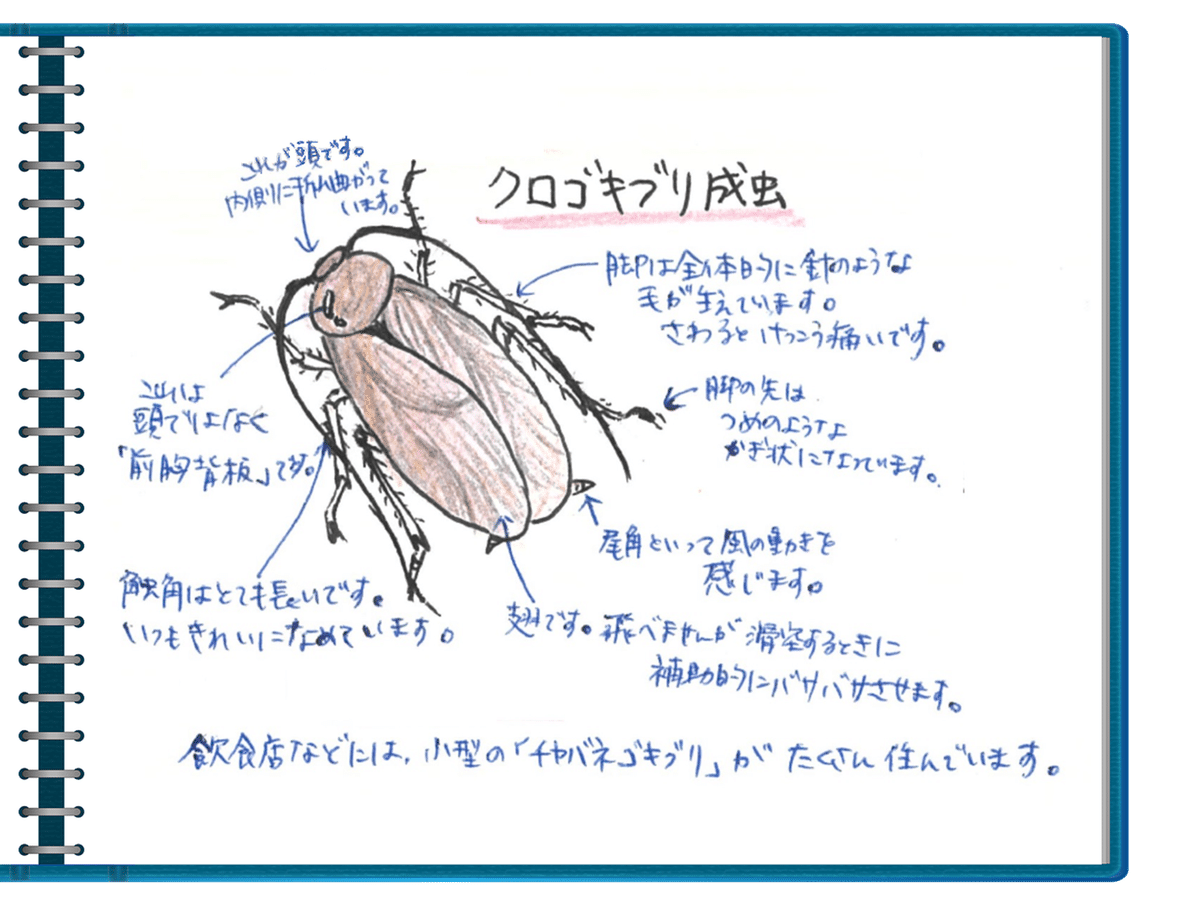 クロゴキブリ成虫
これが頭です。
内側に折れ曲がって
います。
脚は全体的に針のような
毛が生えています。
さわるとけっこう痛いです。
脚の先は
つめのような
かぎ状になっています。
これは
頭ではなく
「前胸背板」です。
尾角といって風の動きを
感じます。
触角はとても長いです。
いつもきれいになめています。
翅です。飛べませんが滑空するときに
補助的にバサバサさせます。
飲食店などには、小型の「チャバネゴキブリ」がたくさん住んでいます。